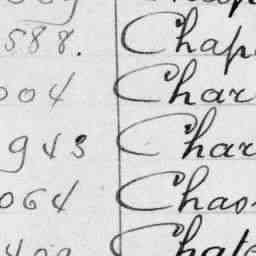 588. Chap
004 Char
943 Char
064 Chas